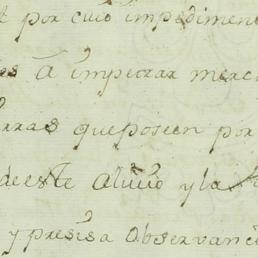 por cuio impedimen
a impetrar merc
rras que poseen por
de este alivio y la
y presisa observanci